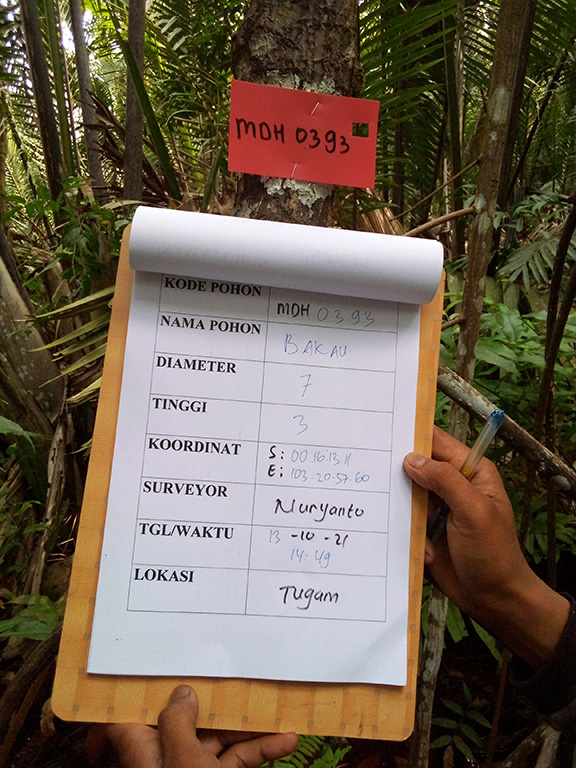 MDH 0393
KODE POHON MDH 0393
NAMA POHON BAKAU
DIAMETER 7
TINGGI 3
KOORDINAT S: 00.16.13.11
E: 103.20.57.60
SURVEYOR Nuryanto
TGL/WAKTU 13-10-21
14.49
LOKASI Tugam